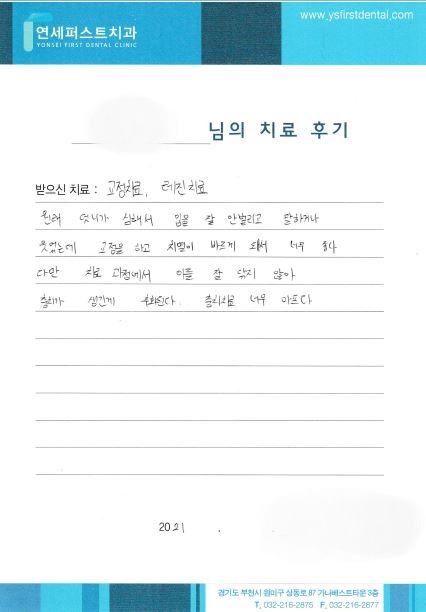 www.ysfirstdental.com
연세퍼스트치과
YONSEI FIRST DENTAL CLINIC
님의 치료 후기
받으신 치료 : 교정치료, 레진치료
원래 덧니가 심해서 입을 잘 안벌리고 말하거나
웃었는데 교정을 하고 치열이 바르게 되서 너무 좋다
다만 치료 과정에서 이를 잘 닦지 않아
충치가 생긴게 후회된다. 충치치료 너무 아프다
2021 .
경기도 부천시 원미구 상동로 87 가나베스트타운 3층
T, 032-216-2875 F, 032-216-2877